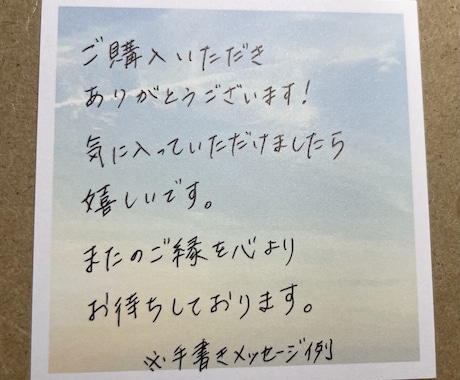 ご購入いただき
ありがとうございます!
気に入っていただけましたら
嬉しいです。
またのご縁を心より
お待ちしております。
※手書きメッセージ例